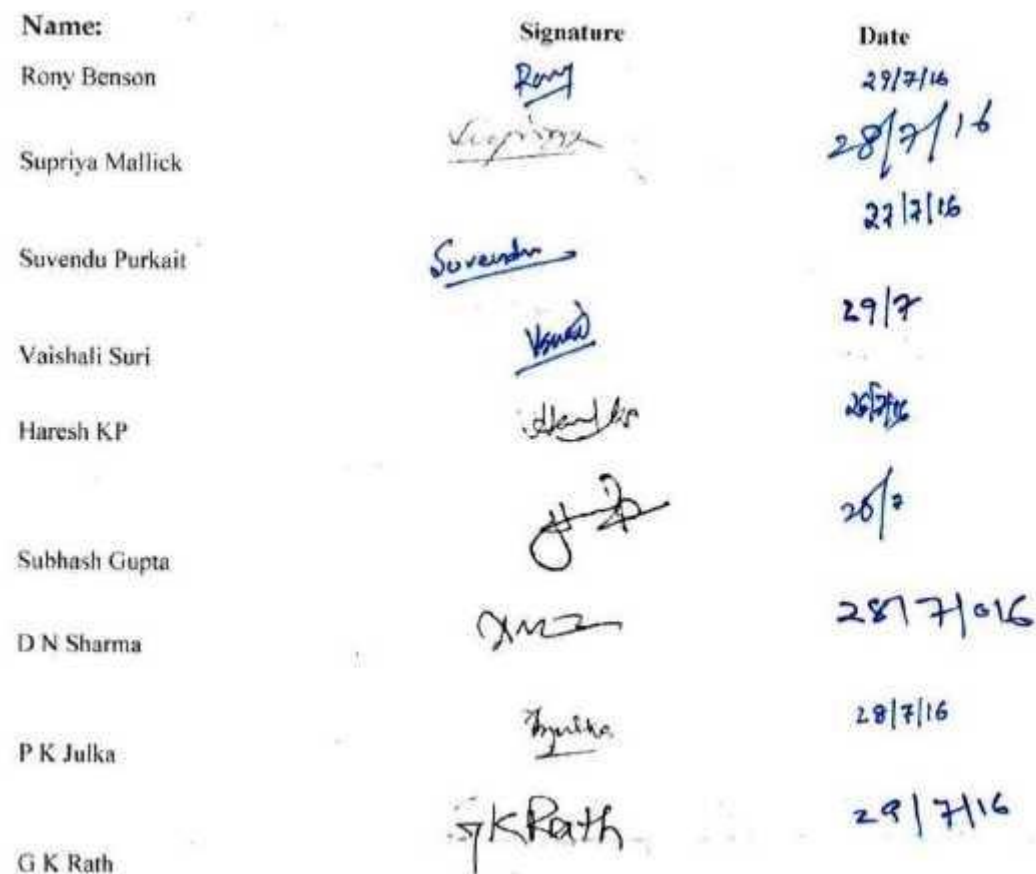 Name: Signature Date
Rony Benson Rony 29/7/16
Supriya Mallick Supriya 28/7/16
Suvendu Purkait Suvendu 27/7/16
Vaishali Suri 29/7
Haresh KP 26/7/16
Subhash Gupta 26/7
D N Sharma 28/7/016
P K Julka 28/7/16
G K Rath GK Rath 29/7/16